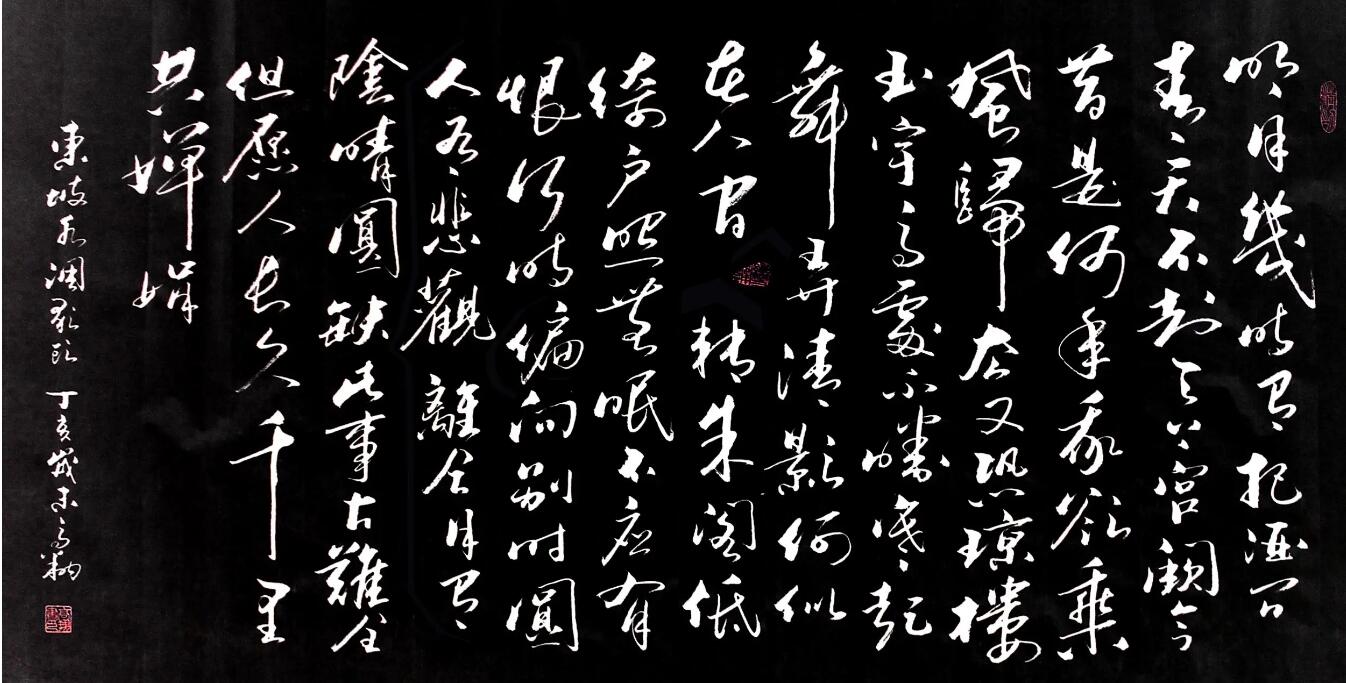 明月幾時有把酒問
青天不知天上宮闕今
昔是何年我欲乘
風歸去又恐瓊樓
玉宇高處不勝寒起
舞弄清影何似
在人間轉朱閣低
綺戶照無眠不應有
恨何時偏向別時圓
人有悲觀離合月有
陰晴圓缺此事古難全
但願人長久千里
共嬋娟
東坡水調歌頭 丁亥歲末高